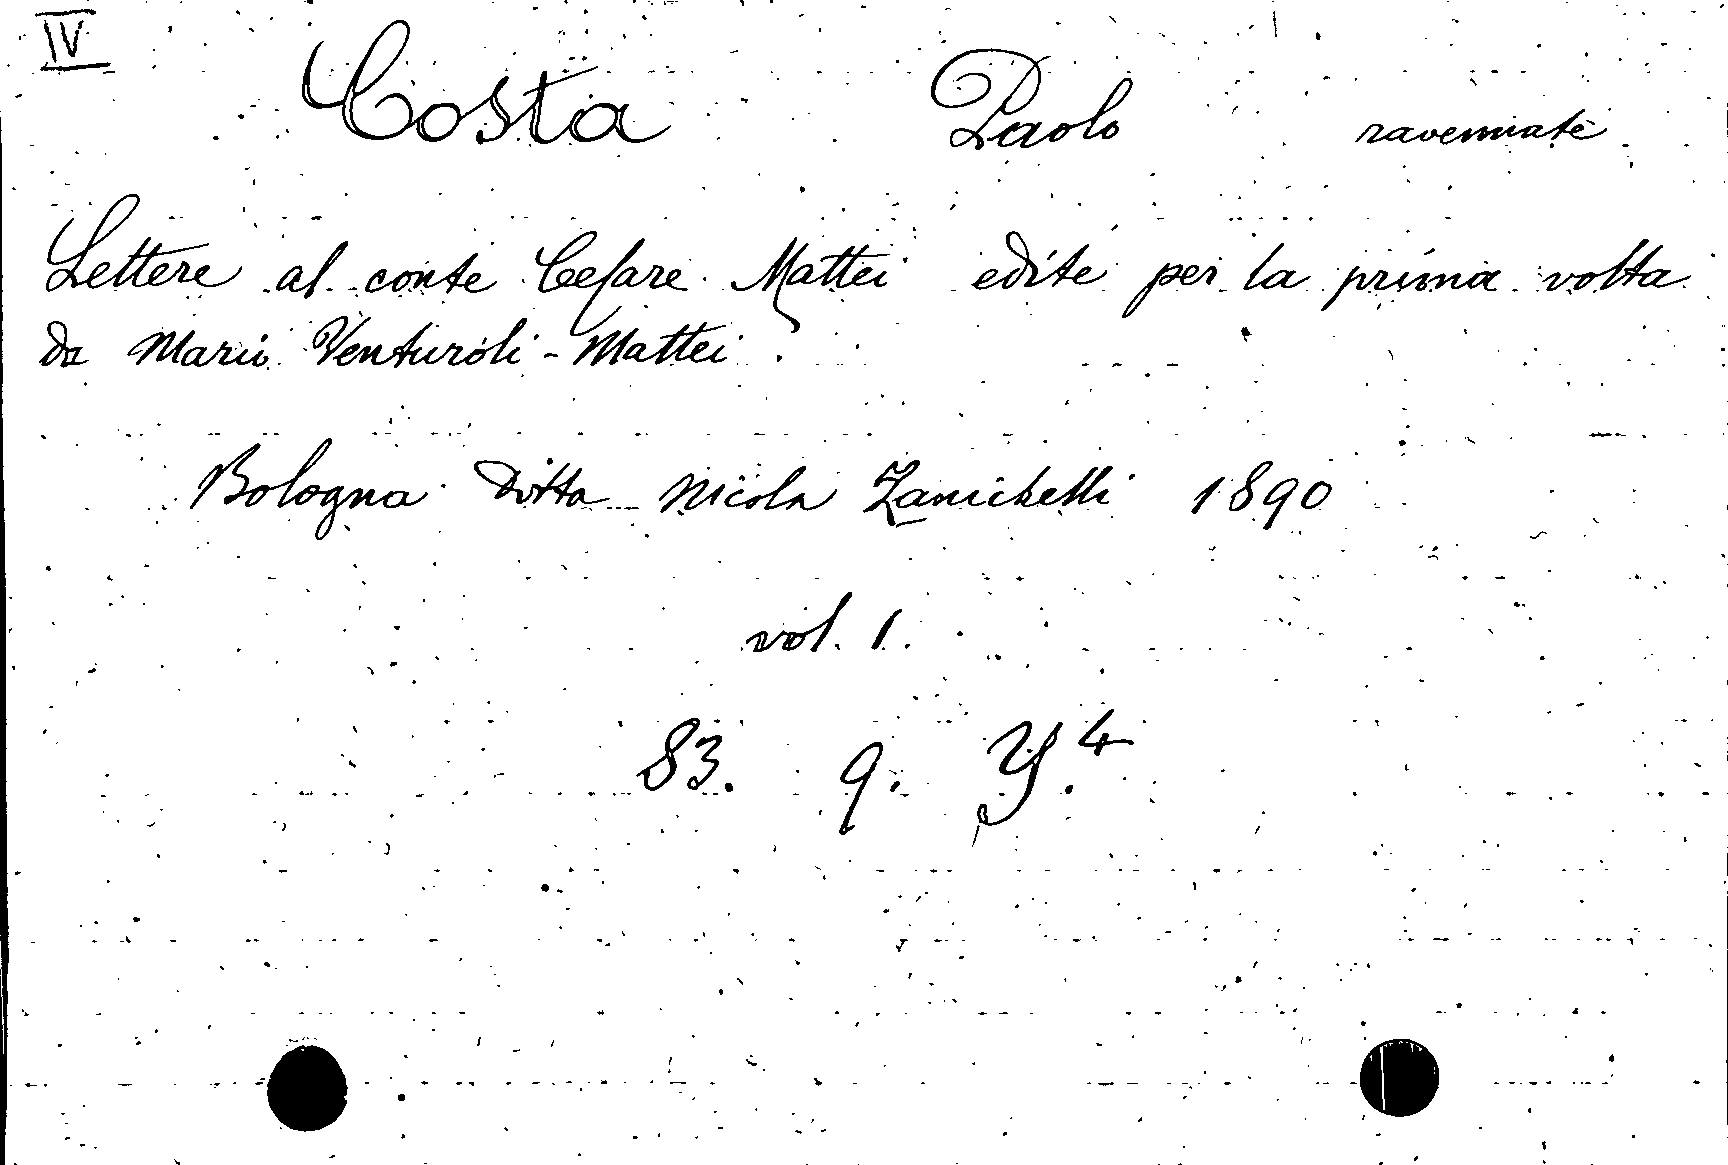 IV
Costa Paolo ravennate
Lettere al conte Cesare Mattei edite per la prima volta
da Mario Venturoli-Mattei.
Bologna Ditta Nicola Zanichelli 1890
vol. 1.
83. q. Y.4